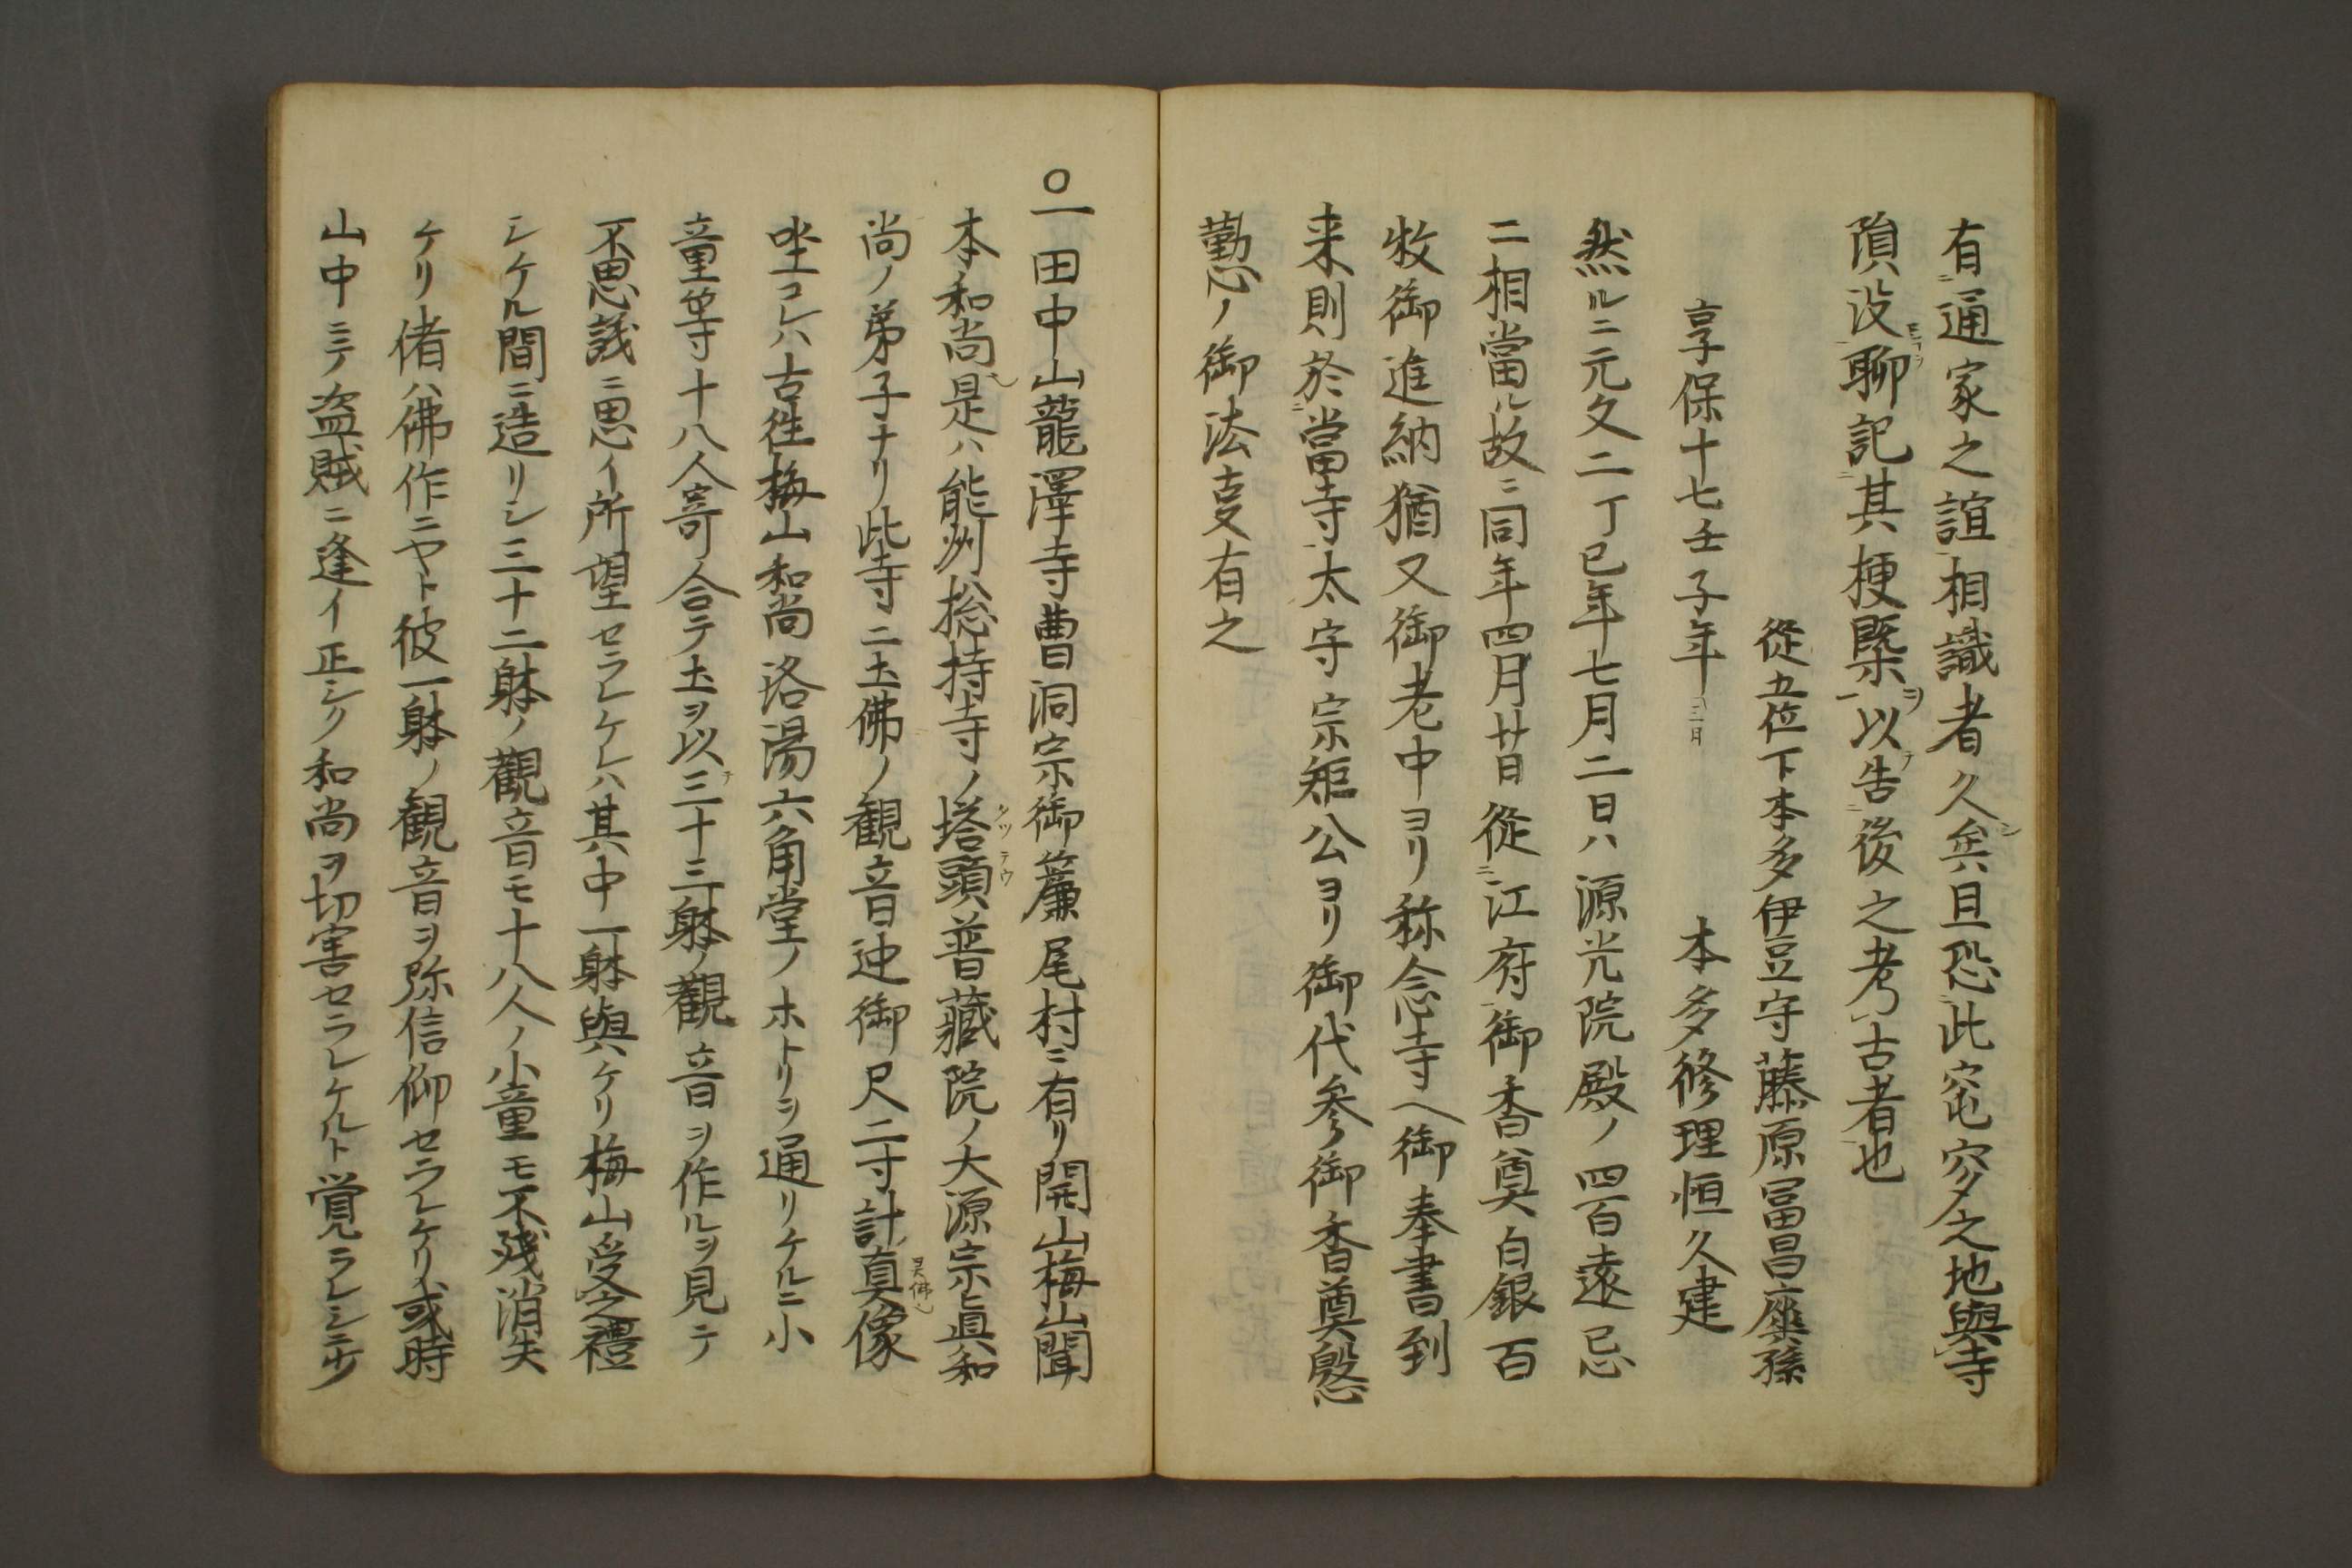 有通家之誼相識者久矣且恐此窀穸之地與寺
隕没聊記其梗槩以告後之考古者也
従五位下本多伊豆守藤原冨昌庶孫
享保十七壬子年三月　本多修理恒久建
然ルニ元文二丁巳年七月二日ハ源光院殿ノ四百遠忌
ニ相當ル故ニ同年四月廿日従江府御香奠白銀百
牧御進納猶又御老中ヨリ称念寺ヘ御奉書到
来則於當寺太守宗矩公ヨリ御代参御香奠慇
懃ノ御法㕝有之
○一田中山龍澤寺曹洞宗御簾尾村ニ有リ開山梅山聞
本和尚也是ハ能州揔持寺ノ塔頭普藏院ノ大源宗真和
尚ノ弟子ナリ此寺ニ土佛ノ観音迚御尺二寸計真像
坐コレハ古徃梅山和尚洛湯六角堂ノホトリヲ通リケルニ小
童等十八人寄ノ合テ土ヲ以テ三十三躰ノ觀音ヲ作ルヲ見テ
不思議ニ思イ所望セラレケレハ其中一躰與ハケリ梅山受之禮
シケル間ニ造リシ三十二躰ノ觀音モ十八人ノ小童モ不残消失
ケリ偖ハ佛作ニヤト彼一躰ノ観音ヲ弥信仰セラレケリ或時
山中ニテ盗賊ニ逢イ正シク和尚ヲ切害セラレケルト覚ラレシニ少